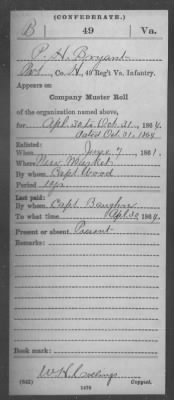 (CONFEDERATE.)
B 49 Va.
P. H. Bryant
Pvt, Co. H, 49 Reg't Va. Infantry.
Appears on
Company Muster Roll
of the organization named above,
for Apl. 30 to Oct. 31, 1864.
dated Oct. 31, 1864
Enlisted:
When June 7, 1861.
Where New Market
By whom Capt Wood
Period 1 yr.
Last paid:
By whom Capt. Baughn
To what time Apl 30, 1864.
Present or absent Present
Remarks:
Book mark:
W H
(642) Copyist.